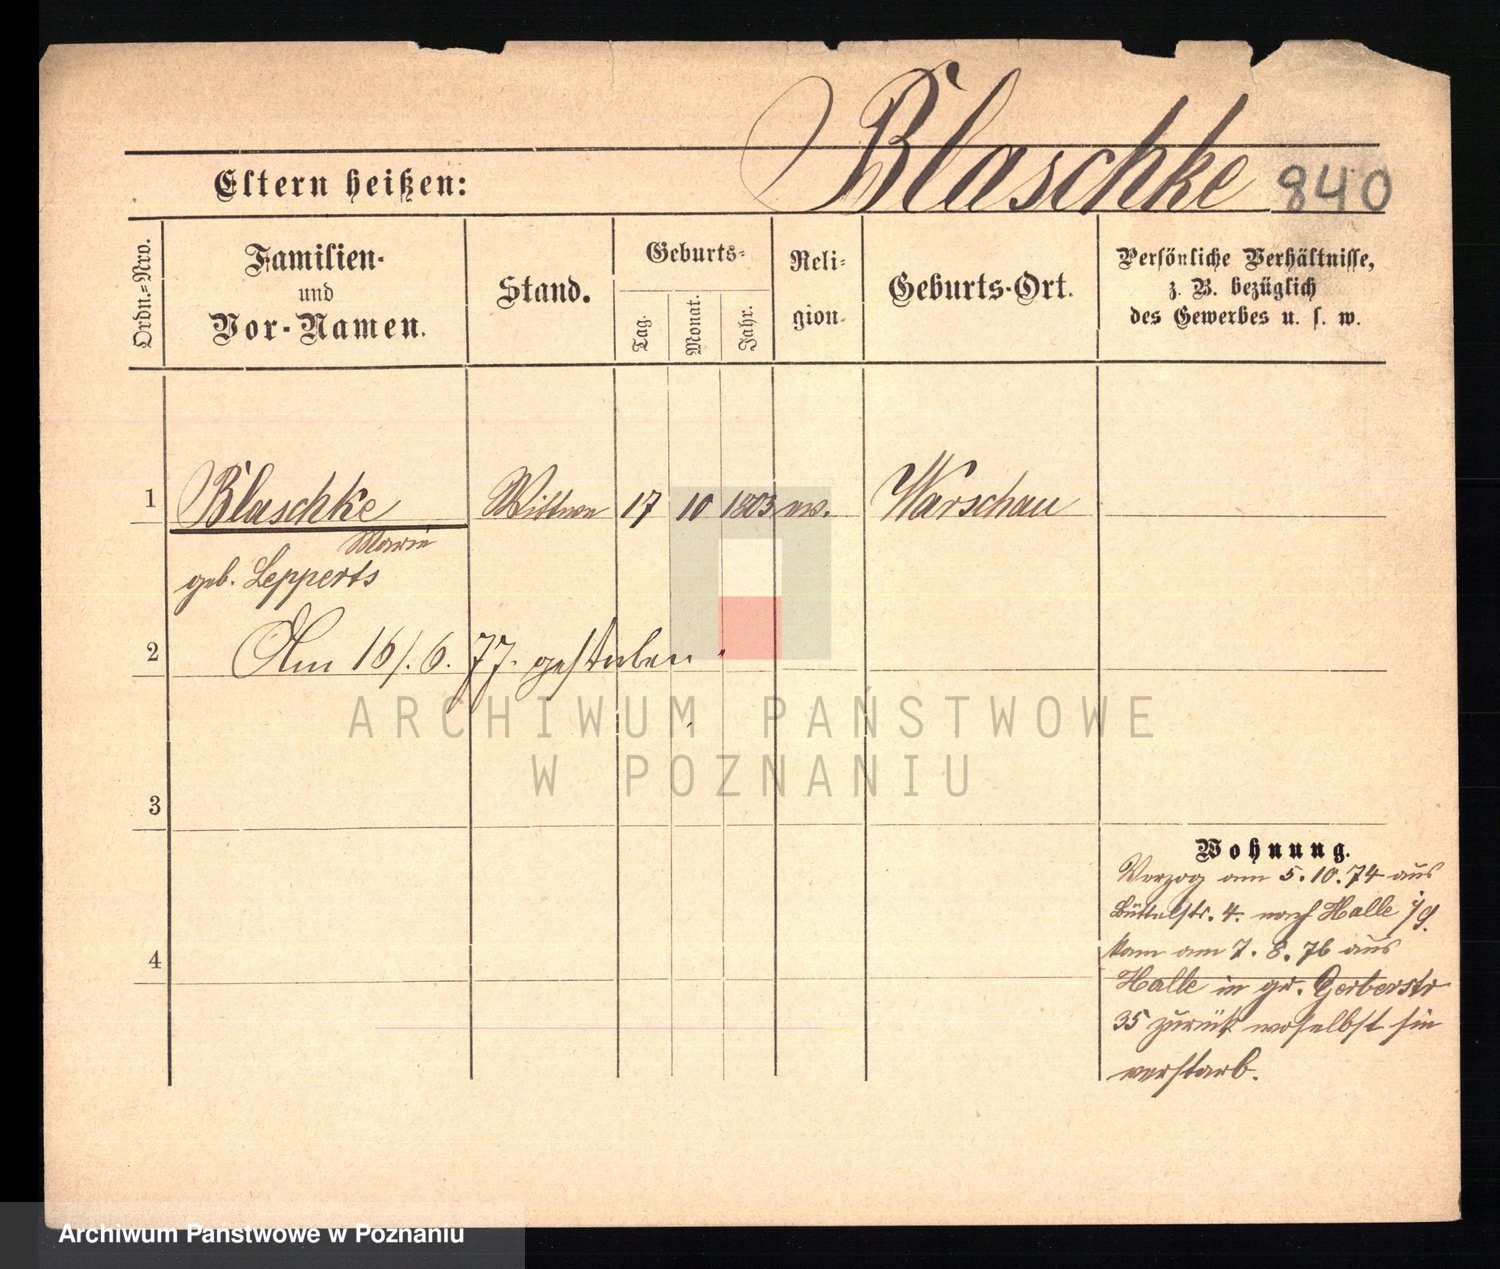 Blaschke 840
Eltern heißen:
Ordn.=Nro.
Familien-
und
Vor-Namen.
Stand.
Geburts-
Tag.
Monat.
Jahr.
Reli-
gion.
Geburts-Ort.
Persönliche Verhältnisse,
z. B. bezüglich
des Gewerbes u. s. w.
1 Blaschke Wittwe 17 10 1803 ev. Warschau
Marie
geb. Lepperts
2 Am 16/.6.77. gestorben.
ARCHIWUM PAŃSTWOWE
W POZNANIU
3
Wohnung.
Verzog am 5.10.74 aus
Büttelstr. 4. nach Halle
4
kam am 7.8.76 aus
Halle in gr. Gerberstr
35 zurück woselbst sie
verstarb.
Archiwum Państwowe w Poznaniu